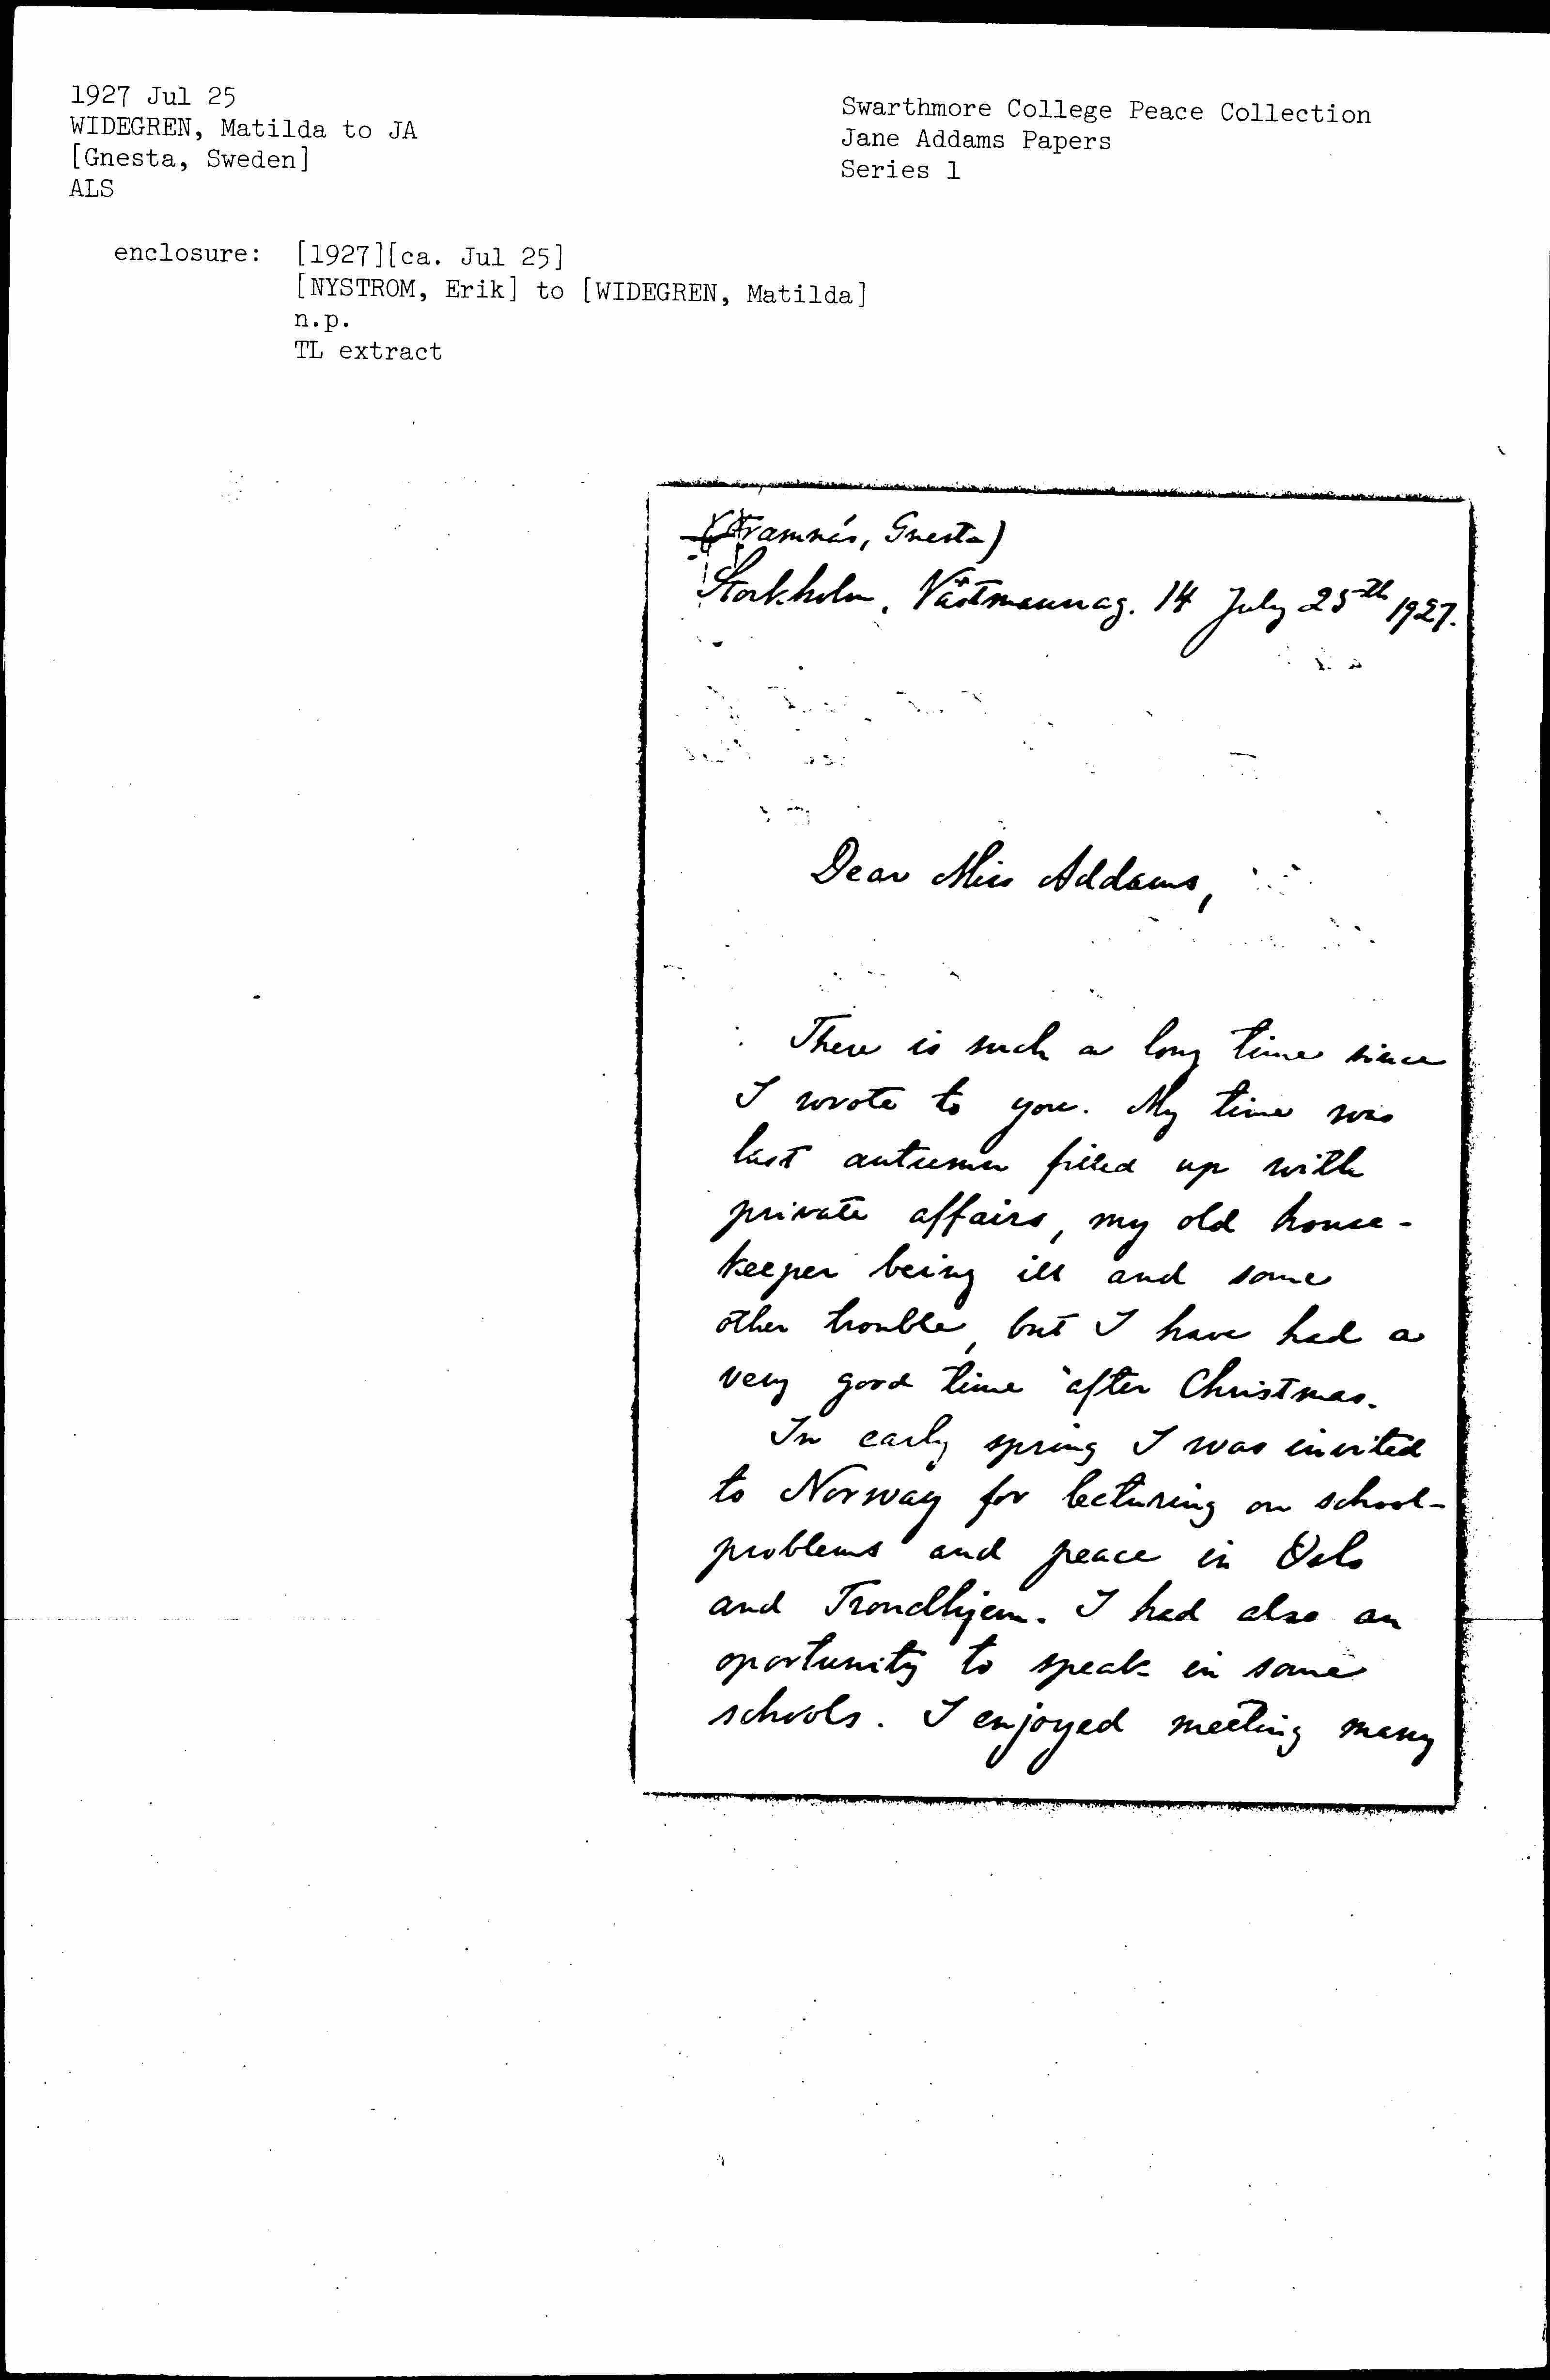 1927 Jul 25
WIDEGREN, Matilda to JA
[Gnesta, Sweden]
ALS
Swarthmore College Peace Collection
Jane Addams Papers
Series 1
enclosure: [1927][ca. Jul 25]
[NYSTROM, Erik] to [WIDEGREN, Matilda]
n.p.
TL extract
(Framnäs, Gnesta)
Stockholm, Västmannag. 14 July 25th 1927.
Dear Miss Addams,
There is such a long time since
I wrote to you. My time was
last autumn filled up with
private affairs, my old house-
keeper being ill and some
other trouble, but I have had a
very good time after Christmas.
In early spring I was invited
to Norway for lecturing on school-
problems and peace in Oslo
and Trondhjem. I had also an
oportunity to speak in some
schools. I enjoyed meeting many